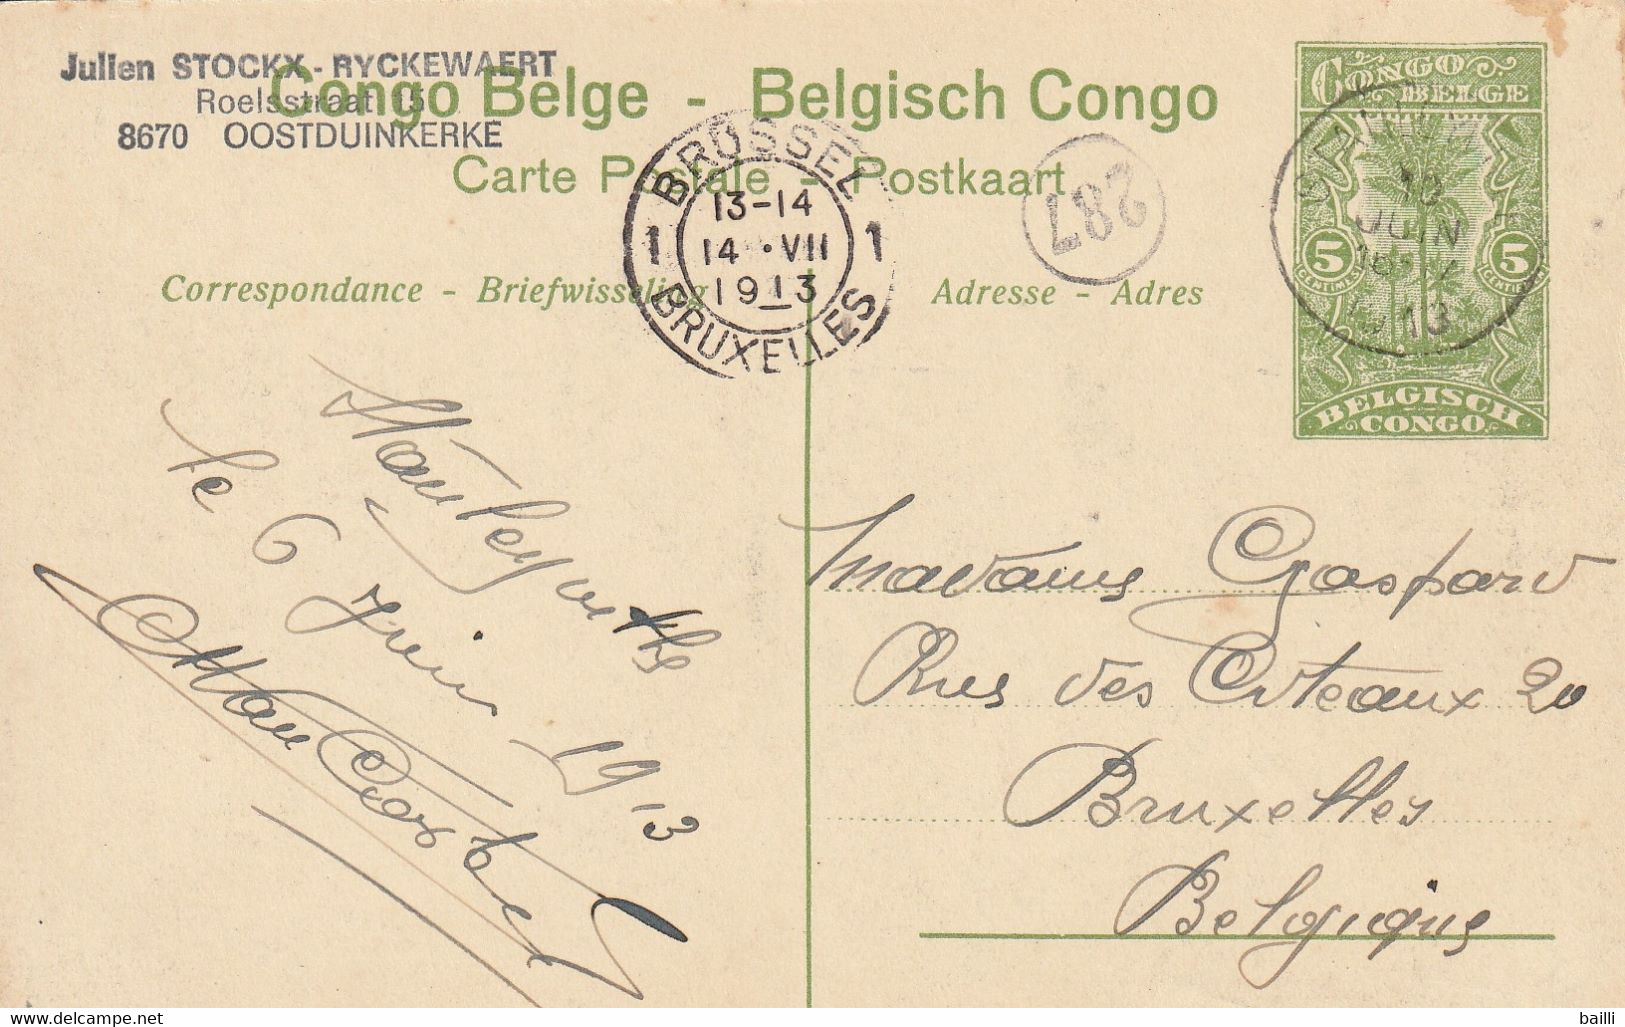 Julien STOCKX - RYCKEWAERT
Roelsstraat 15
8670 OOSTDUINKERKE
Congo Belge - Belgisch Congo
Carte Postale - Postkaart
Correspondance - Briefwisseling
Adresse - Adres
BRUSSEL
1 13-14 1
14 • VII
1913
BRUXELLES
287
CONGO
BELGE
10
JUIN
16-17
1913
5 5
CENTIMES CENTIMES
BELGISCH
CONGO
Stanleyville
le 6 Juin 1913
Madame Gaspard
Rue des Citeaux 20
Bruxelles
Belgique
bailli